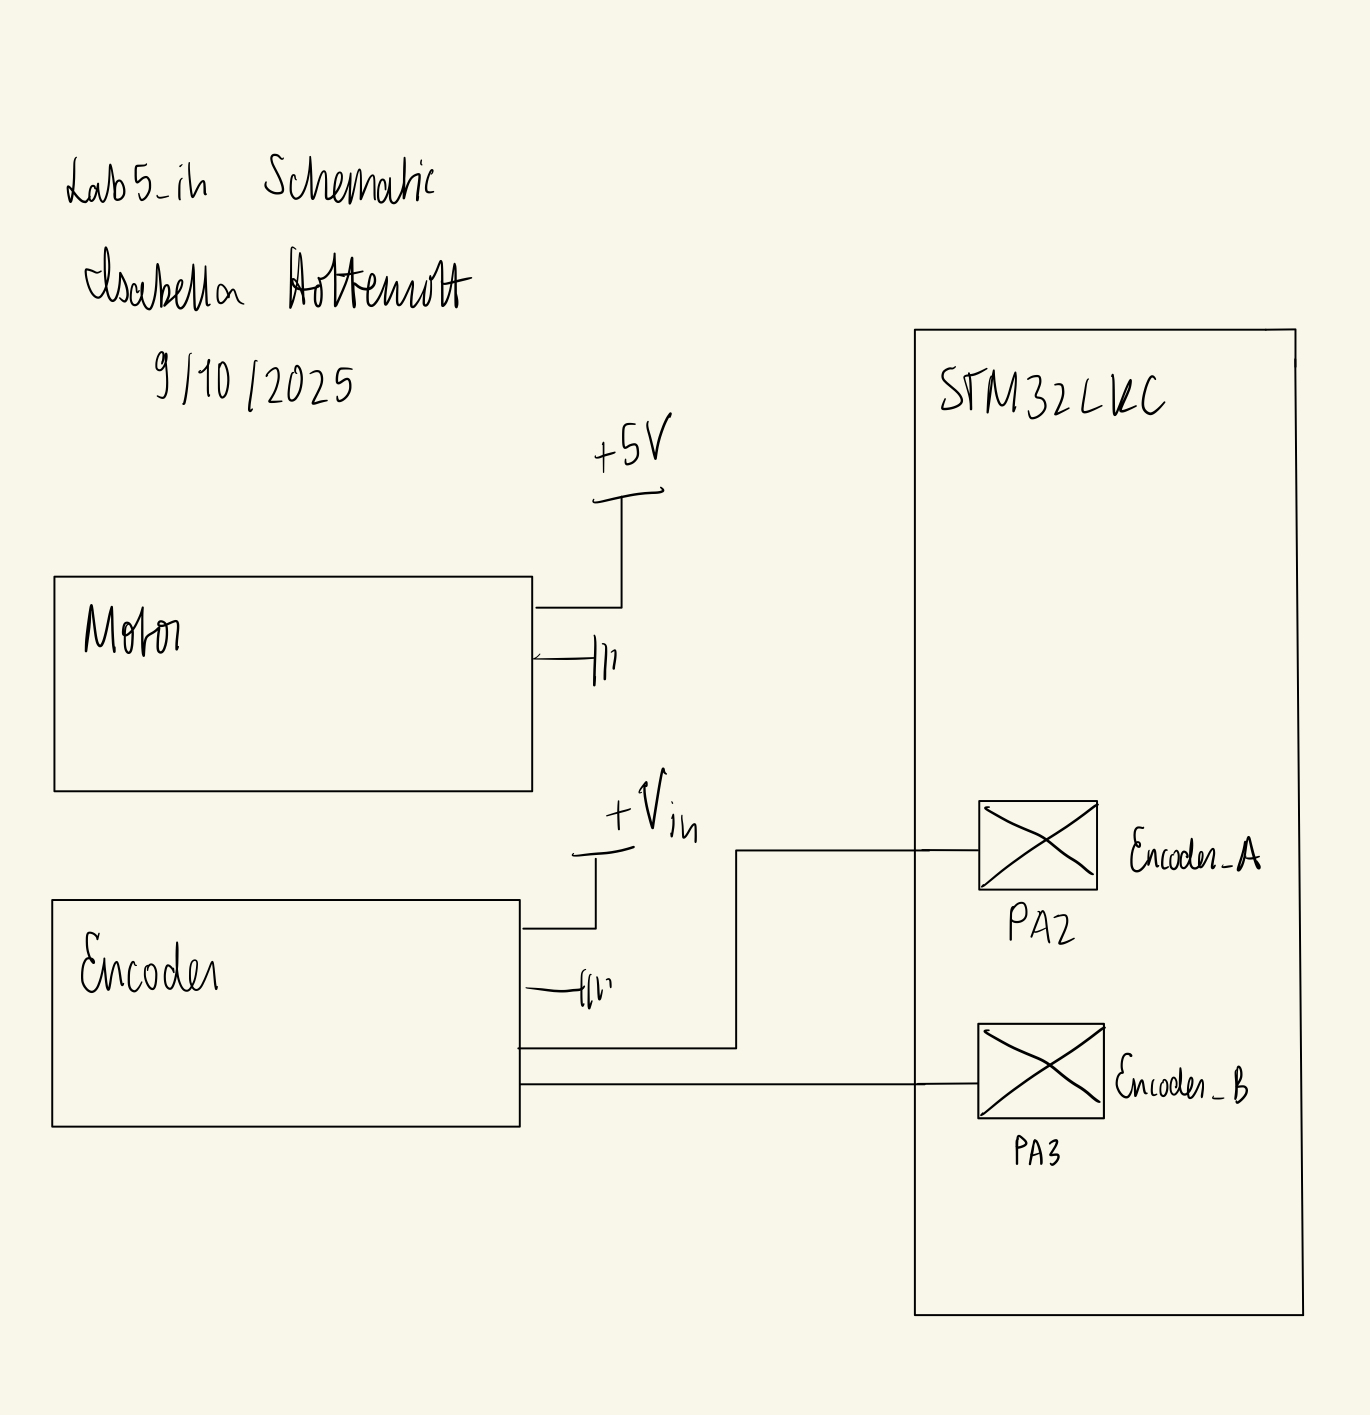 Lab5_ih Schematic
Isabella Hottenrott
9/10/2025
+5V
STM32LKC
Motor
+Vin
Encoder
Encoder_A
PA2
Encoder_B
PA3